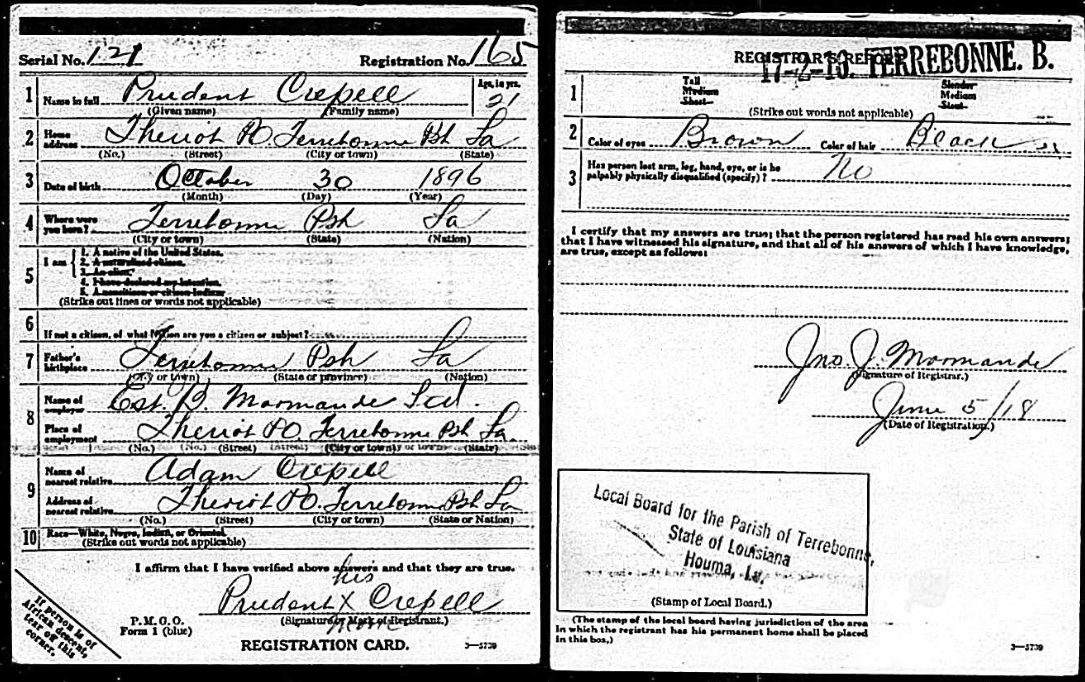 Serial No. 121 Registration No. 165
1 Name in full Prudent Crepell Age, in yrs. 21
(Given name) (Family name)
2 Home address Theriot PO. Terrebonne Psh La
(No.) (Street) (City or town) (State)
3 Date of birth October 30 1896
(Month) (Day) (Year)
4 Where were you born? Terrebonne Psh La
(City or town) (State) (Nation)
5 I am 1. A native of the United States.
2. A naturalized citizen.
3. An alien.
4. I have declared my intention.
5. A noncitizen or citizen Indian.
(Strike out lines or words not applicable)
6 If not a citizen, of what Nation are you a citizen or subject?
7 Father's birthplace Terrebonne Psh La
(City or town) (State or province) (Nation)
8 Name of employer Est. B. Marmande
Place of employment Theriot PO. Terrebonne Psh La.
(No.) (Street) (City or town) (State)
9 Name of nearest relative Adam Crepell
Address of nearest relative Theriot PO. Terrebonne Psh La
(No.) (Street) (City or town) (State or Nation)
10 Race—White, Negro, Indian, or Oriental.
(Strike out words not applicable)
I affirm that I have verified above answers and that they are true.
his
Prudent X Crepell
(Signature or Mark of Registrant.)
mark
P. M. G. O.
Form 1 (blue)
REGISTRATION CARD. 3—5739
If person is of African descent, tear off this corner.
REGISTRAR'S REPORT
17-2-13. TERREBONNE. B.
1 Tall Medium Short Slender Medium Stout
(Strike out words not applicable)
2 Color of eyes Brown Color of hair Black
3 Has person lost arm, leg, hand, eye, or is he palpably physically disqualified (specify)? No
I certify that my answers are true; that the person registered has read his own answers;
that I have witnessed his signature, and that all of his answers of which I have knowledge,
are true, except as follows:
Jno. J. Marmande
(Signature of Registrar.)
June 5/18
(Date of Registration)
Local Board for the Parish of Terrebonne,
State of Louisiana
Houma, La.
(Stamp of Local Board.)
(The stamp of the local board having jurisdiction of the area
in which the registrant has his permanent home shall be placed
in this box.)
3—5739